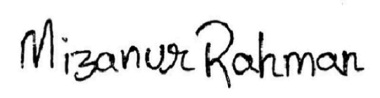 Mizanur Rahman